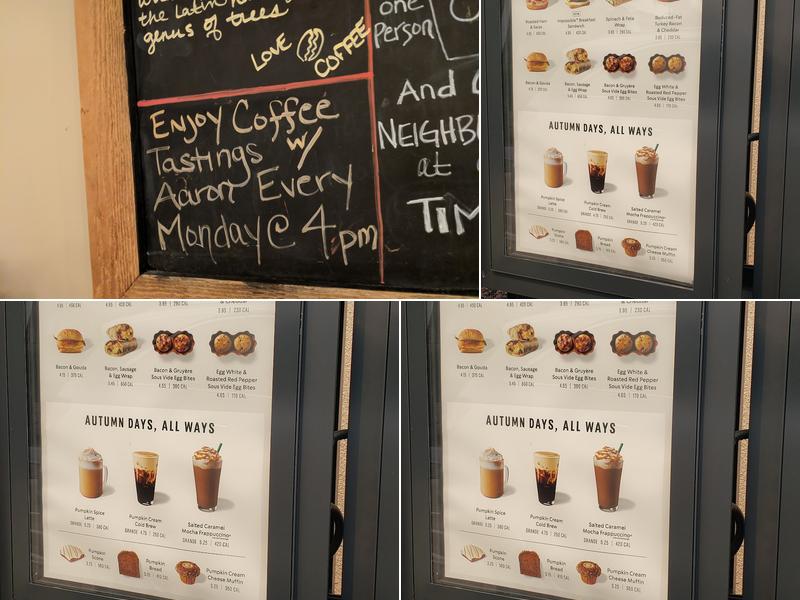 the Latin
genus of trees
LOVE
COFFEE
one
person
And
at
ENJOY Coffee
Tastings w/
Aaron Every
Monday @ 4pm
Roasted Ham
& Swiss
Impossible™ Breakfast
Sandwich
Spinach & Feta
Wrap
Reduced-Fat
Turkey Bacon
& Cheddar
Bacon & Gouda
Bacon, Sausage
& Egg Wrap
Bacon & Gruyère
Sous Vide Egg Bites
Egg White &
Roasted Red Pepper
Sous Vide Egg Bites
AUTUMN DAYS, ALL WAYS
Pumpkin Spice
Latte
Pumpkin Cream
Cold Brew
Salted Caramel
Mocha Frappuccino®
GRANDE 5.25 | 420 CAL
Pumpkin
Scone
Pumpkin
Bread
Pumpkin Cream
Cheese Muffin
& Cheddar
3.95 | 230 CAL
Bacon & Gouda
4.15 | 370 CAL
Bacon, Sausage
& Egg Wrap
5.45 | 650 CAL
Bacon & Gruyère
Sous Vide Egg Bites
4.65 | 300 CAL
Egg White &
Roasted Red Pepper
Sous Vide Egg Bites
4.65 | 170 CAL
AUTUMN DAYS, ALL WAYS
Pumpkin Spice
Latte
GRANDE 5.25 | 380 CAL
Pumpkin Cream
Cold Brew
GRANDE 4.75 | 250 CAL
Salted Caramel
Mocha Frappuccino®
GRANDE 5.25 | 420 CAL
Pumpkin
Scone
Pumpkin
Bread
Pumpkin Cream
Cheese Muffin
& Cheddar
3.95 | 230 CAL
Bacon & Gouda
4.15 | 370 CAL
Bacon, Sausage
& Egg Wrap
5.45 | 650 CAL
Bacon & Gruyère
Sous Vide Egg Bites
4.65 | 300 CAL
Egg White &
Roasted Red Pepper
Sous Vide Egg Bites
4.65 | 170 CAL
AUTUMN DAYS, ALL WAYS
Pumpkin Spice
Latte
GRANDE 5.25 | 380 CAL
Pumpkin Cream
Cold Brew
GRANDE 4.75 | 250 CAL
Salted Caramel
Mocha Frappuccino®
GRANDE 5.25 | 420 CAL
Pumpkin
Scone
Pumpkin
Bread
Pumpkin Cream
Cheese Muffin